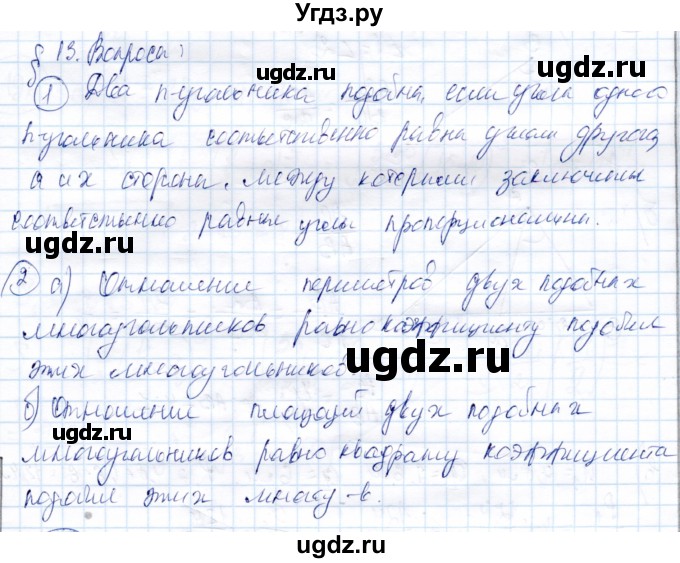 Угдз.ру
§ 13. Вопросы:
1 Два n-угольника подобны, если углы одного
n-угольника соответственно равны углам другого,
а их стороны, между которыми заключены
соответственно равные углы пропорциональны.
2 а) Отношение периметров двух подобных
многоугольников равно коэффициенту подобия
этих многоугольников
б) Отношение площадей двух подобных
многоугольников равно квадрату коэффициента
подобия этих многоу-в.
ugdz.ru
ugdz.ru
ugdz.ru
ugdz.ru
ugdz.ru
ugdz.ru
ugdz.ru